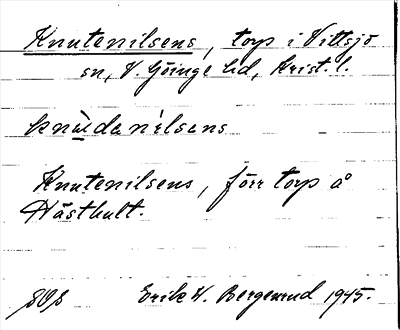 Knutenilsens, torp i Vittsjö
sn, V. Göinge hd, Krist. l.
knùdanìlsens
Knutenilsens, förr torp å
Hästhult.
Erik W. Bergenrud 1945.